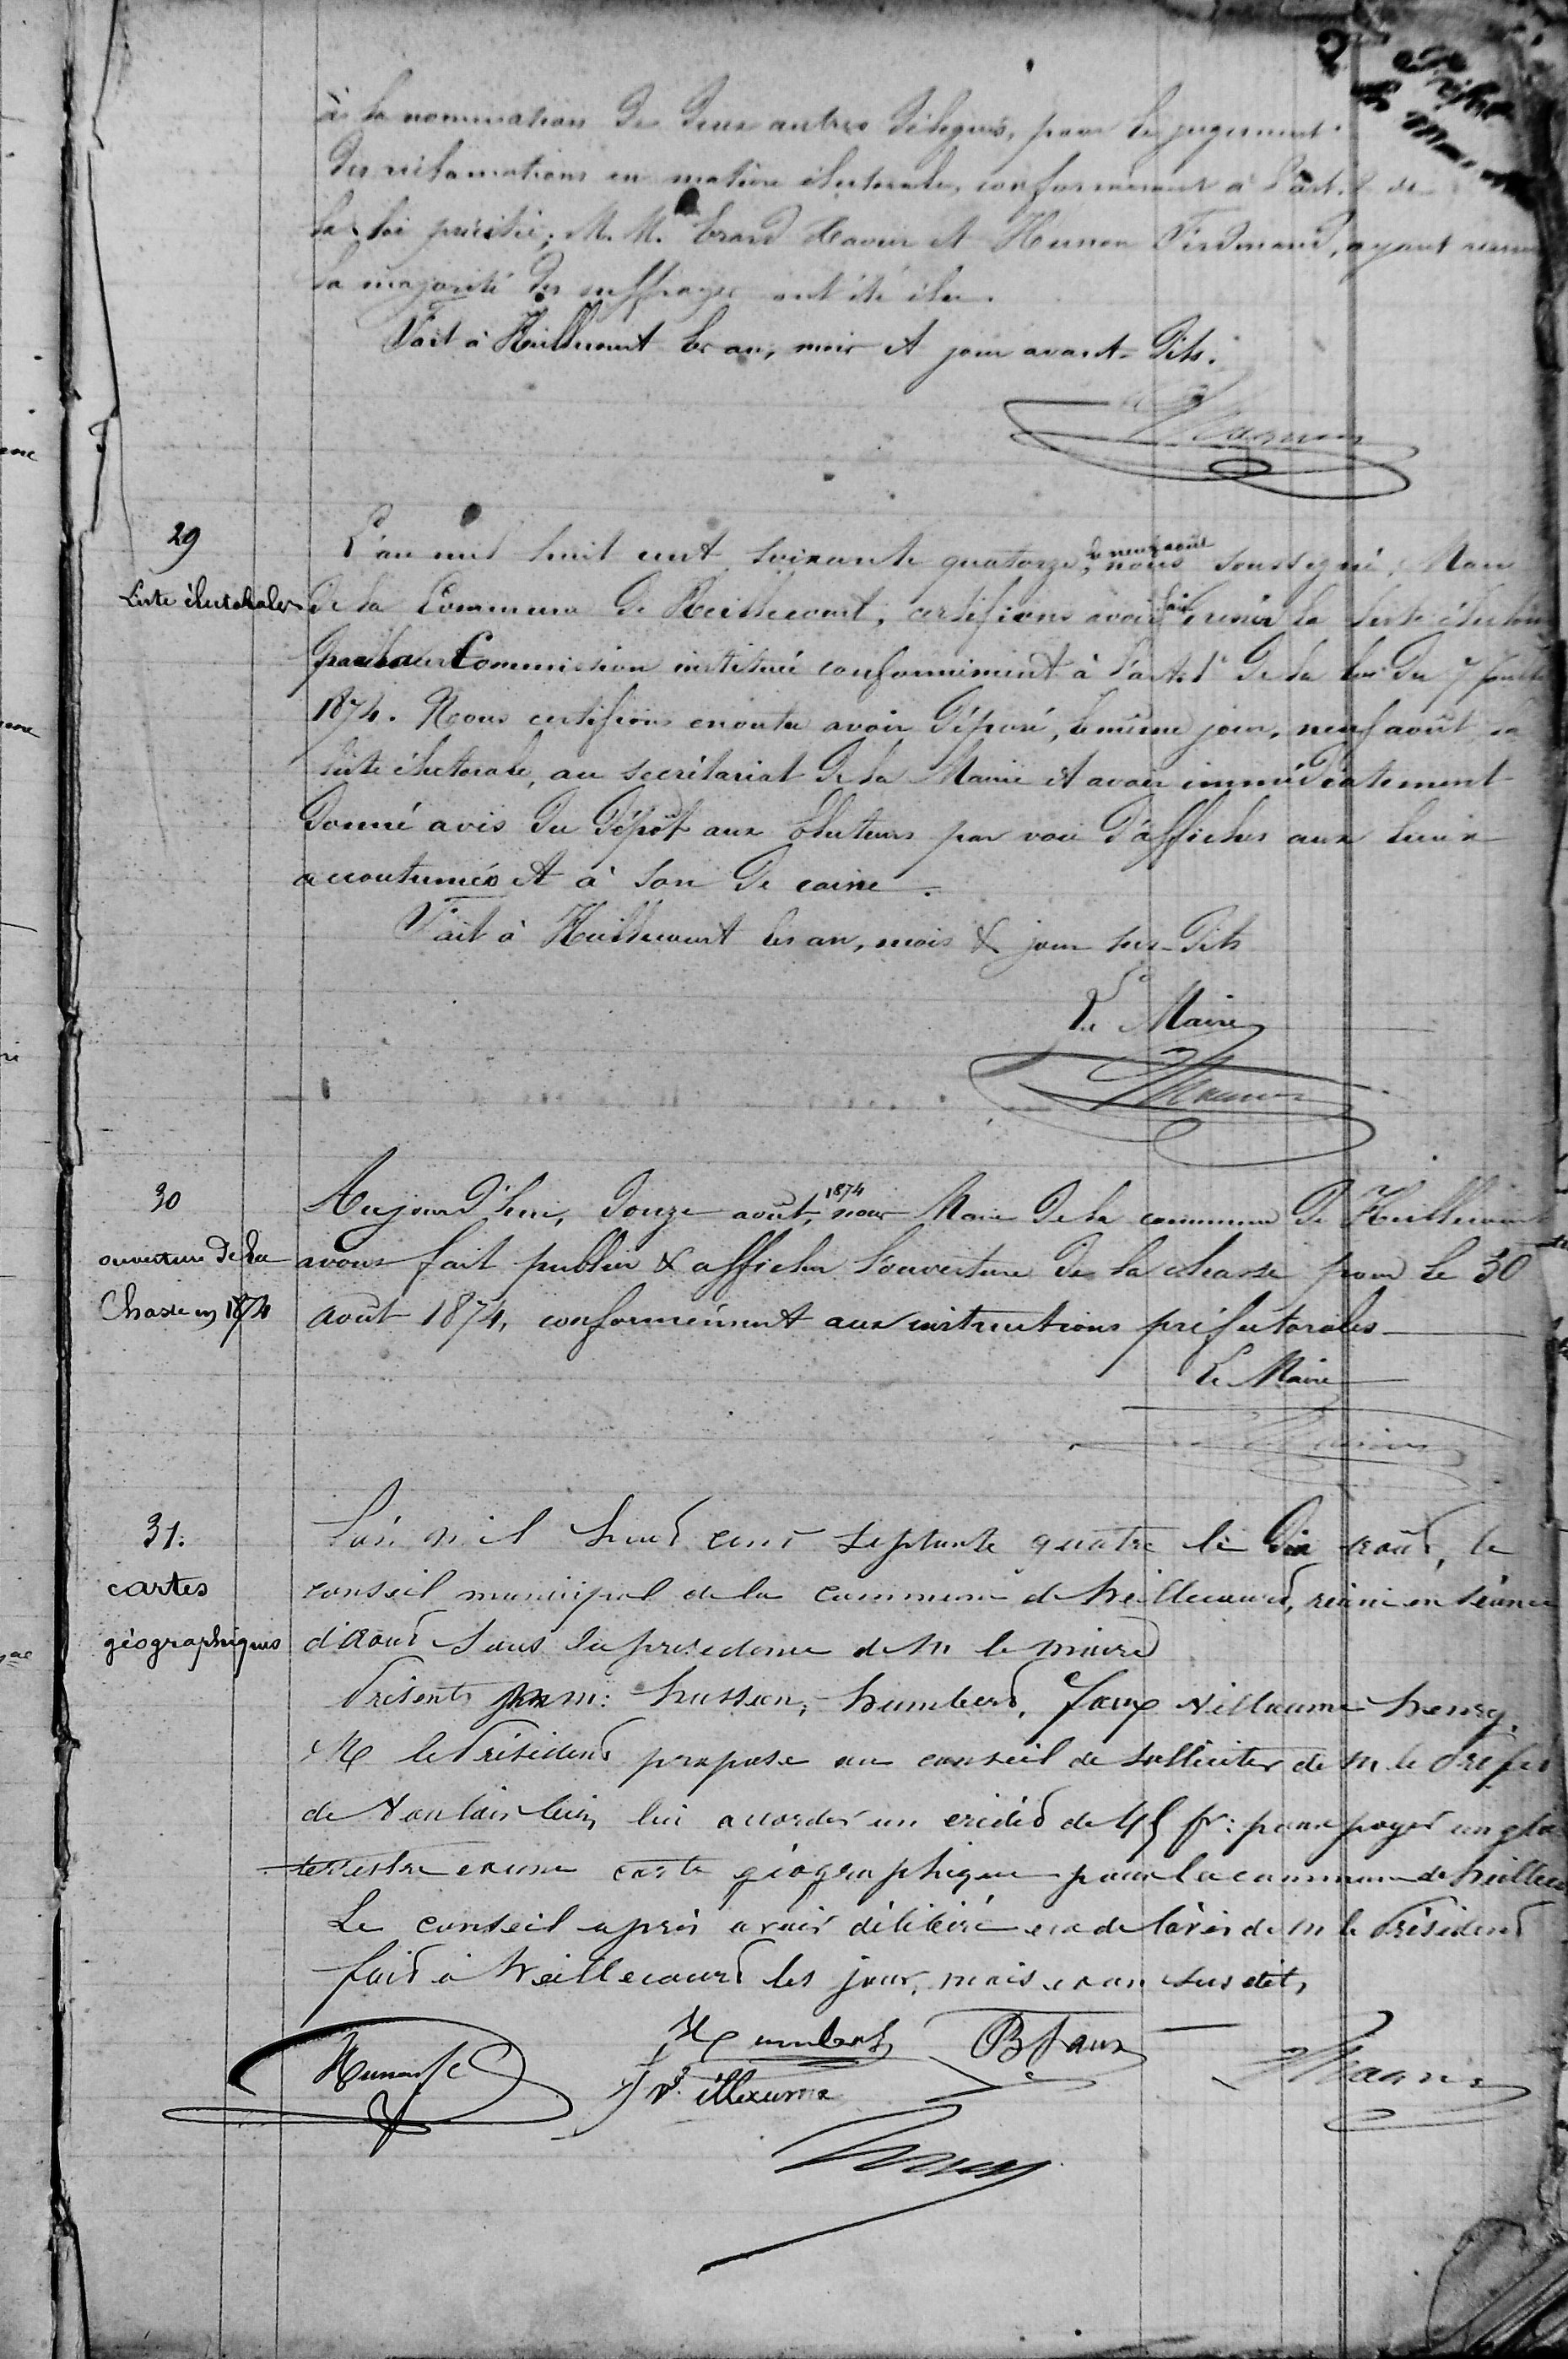 à la nomination de deux autres délégués, pour le jugement
des réclamations en matière électorale, conformément à l'art. 2 de
la loi précitée; M. M. Evard Xavier et Ferdinand, ayant
la majorité des suffrages ont été élu.
Fait à Heillecourt les an, mois et jour avant-dits.
29
Liste électorales
L'an mil huit cent soixante quatorze, le neuf août nous soussigné, Maire
de la Commune de Heillecourt, certifions avoir fait réviser la liste électorale
par la Commission instituée conformément à l'art. 1er de la loi du 7 juillet
1874. Nous certifions enoutre avoir déposé, le même jour, neuf août, la
liste électorale, au secrétariat de la Mairie et avoir immédiatement
donné avis du dépôt aux électeurs par voie d'affiches aux lieux
accoutumés et à son de caisse.
Fait à Heillecourt les an, mois & jour sus-dits
Le Maire
30
ouverture de la
Chasse en 1874
Aujourd'hui, douze août, 1874 nous Maire de la commune de Heillecourt
avons fait publier & afficher l'ouverture de la chasse pour le 30
août 1874, conformément aux instructions préfectorales
Le Maire
31:
cartes
géographiques
L'an mil huit cent septante quatre le dix août, le
conseil municipal de la commune de heillecourt, réuni en séance
d'aout sous la presidence de M le maire
Présents MM: husson, humbert, faux villaume henry.
M le Président propose au conseil de solliciter de M. le Préfet
de vouloir bien lui accorder un crédit de 45 fr: pour payer un
terrestre et une carte géographique pour la commune de
Le conseil après avoir délibéré est de l'avis de M le Président
fait à heillecourt les jour, mois et an susdit,
Humbert
B faux
villaume